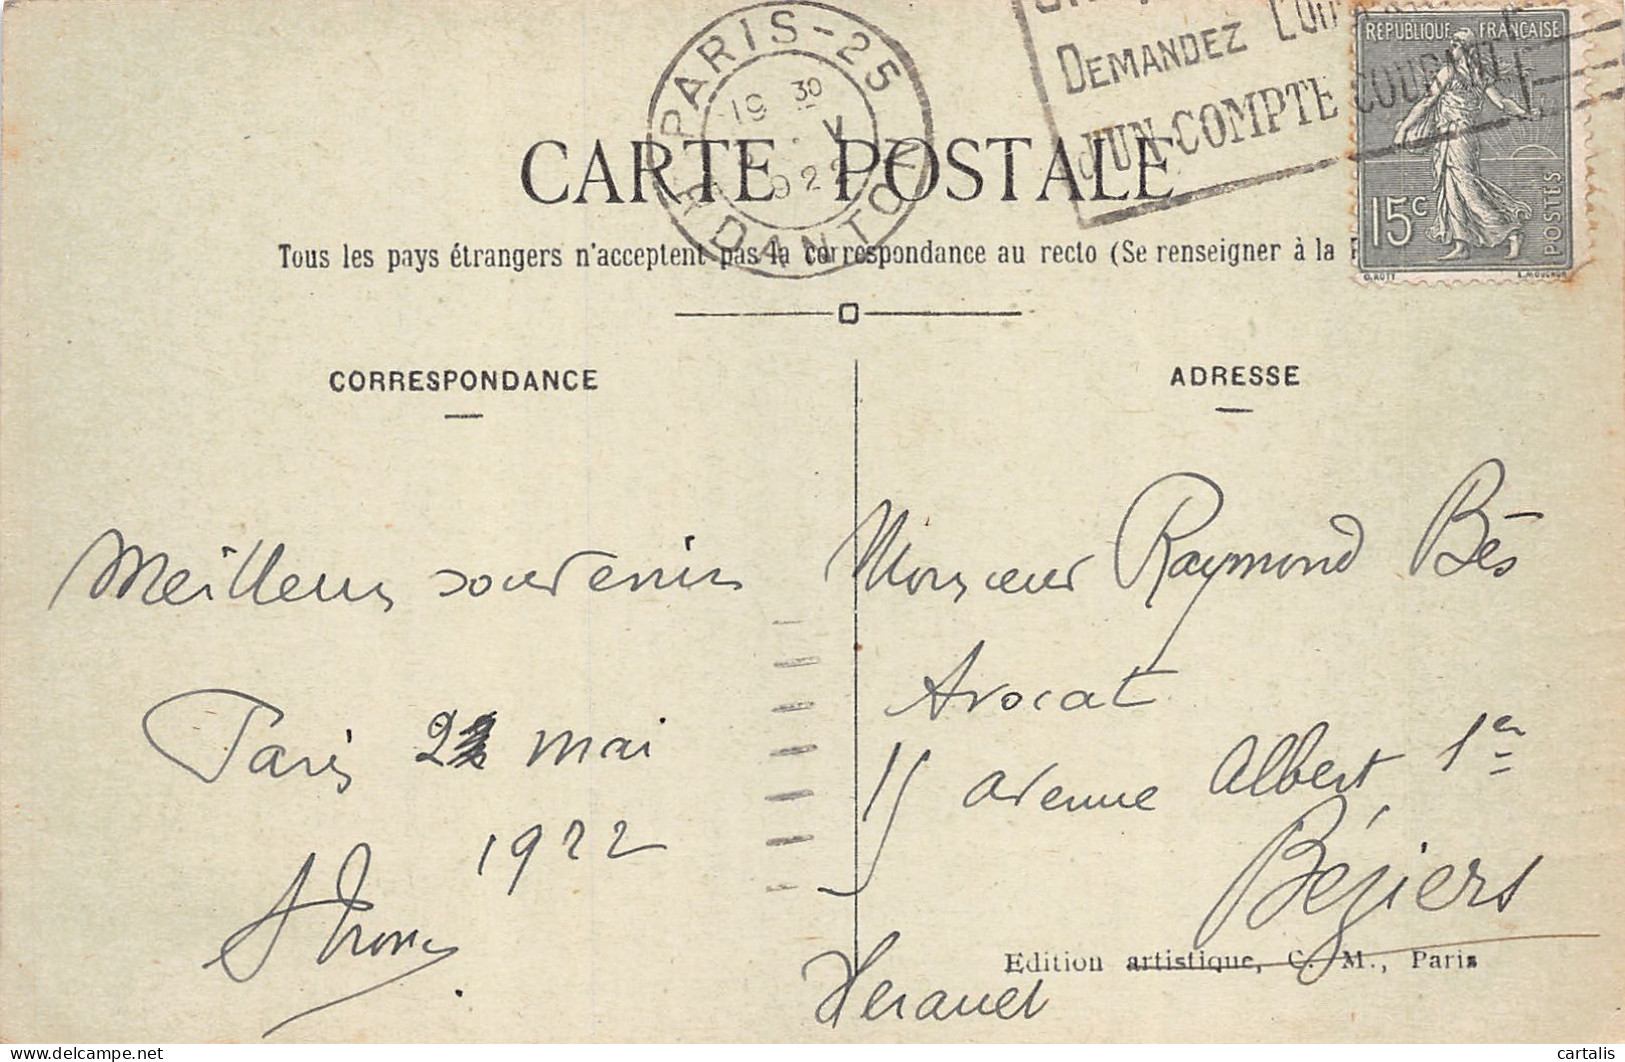 PARIS-25
19 30
V
1922
R DANTON
DEMANDEZ L'OU
D'UN COMPTE COURANT
RÉPUBLIQUE FRANÇAISE
15c
POSTES
O. ROTY
L. MOUCHON
CARTE POSTALE
Tous les pays étrangers n'acceptent pas la correspondance au recto (Se renseigner à la
CORRESPONDANCE
ADRESSE
Meilleurs souvenirs
Paris 22 mai
1922
Monsieur Raymond Bès
Avocat
15 avenue Albert 1er
Béziers
Hérault
Edition artistique, C. M., Paris
cartalis
delcampe.net